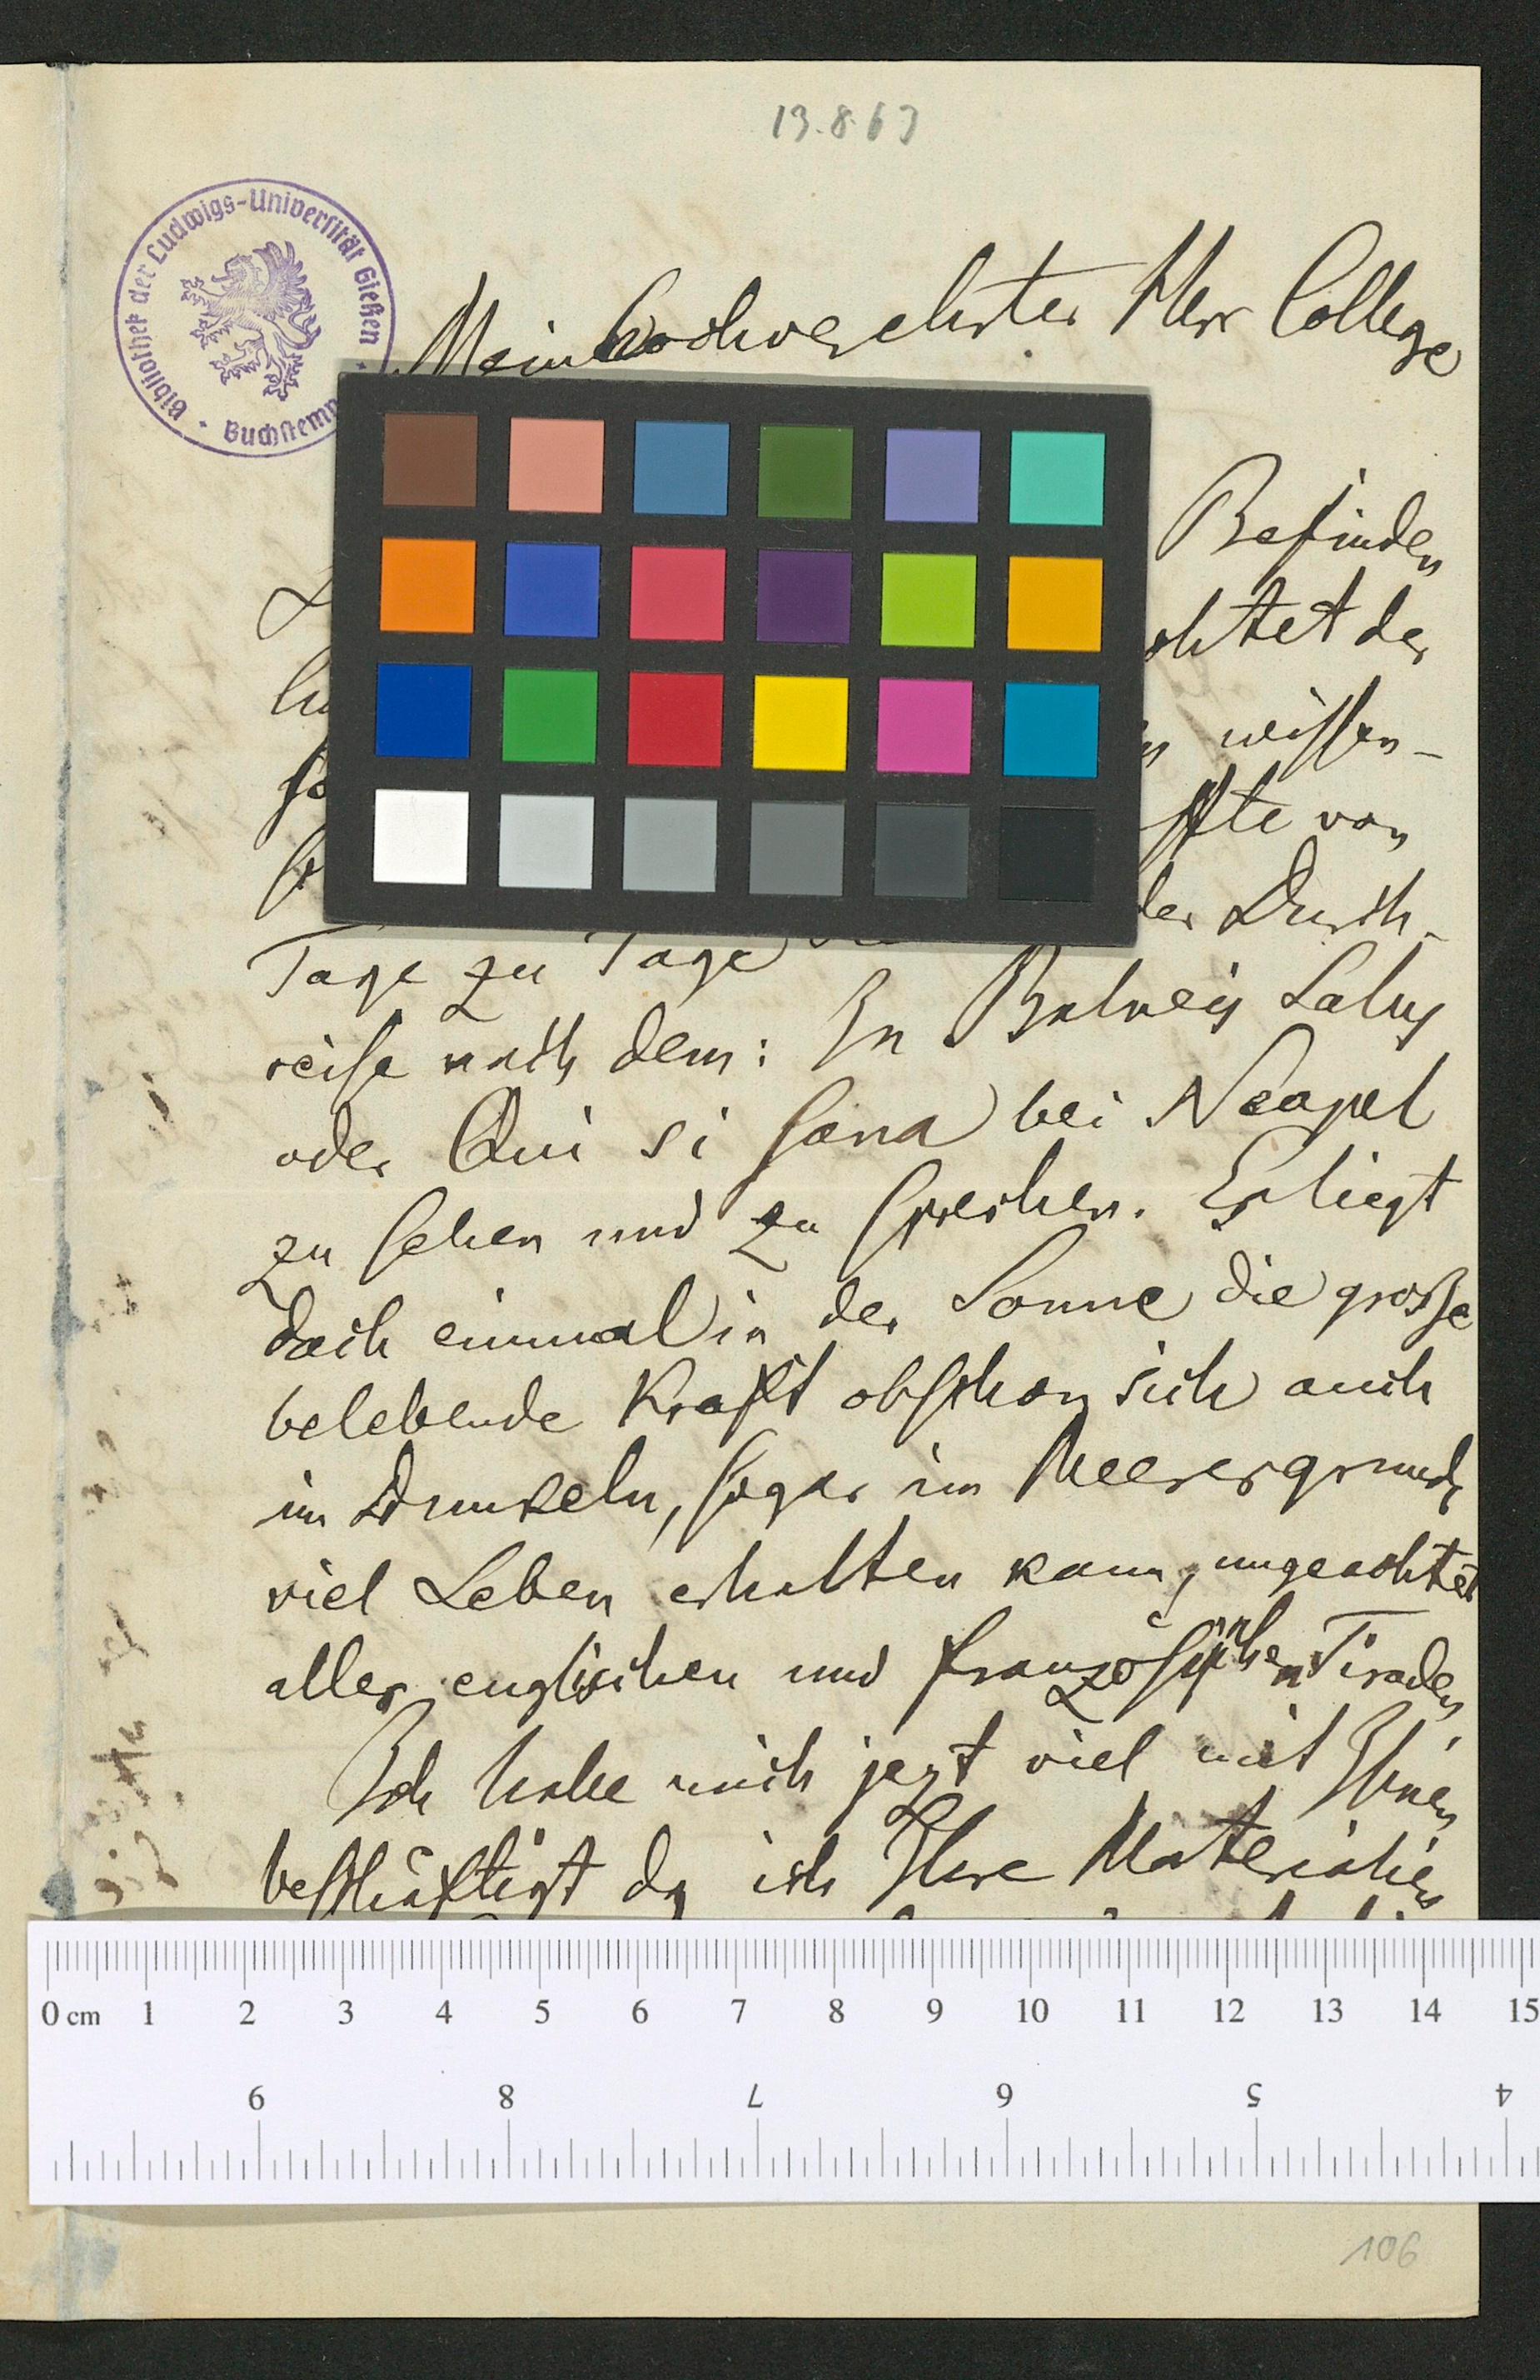 13.8.63
Bibliothek der Ludwigs-Universität Gießen
Buchstemp
Mein hochverehrter Herr College
Befinden
chtet der
wissen-
von
Tage zu Tage der Durch-
reise nach dem: In Balneis Salus
oder Qui si sana bei Neapel
zu sehen und zu sprechen. Es liegt
doch einmal in der Sonne die große
belebende Kraft obschon sich auch
im Dunkeln, sogar im Meeresgrund,
viel Leben erhalten kann, ungeachtet
aller englischen und französischen Tiraden.
Ich habe mich jezt viel mit Ihnen
beschäftigt da ich Ihre Materialien
0 cm 1 2 3 4 5 6 7 8 9 10 11 12 13 14 15
9 8 7 6 5 4
106